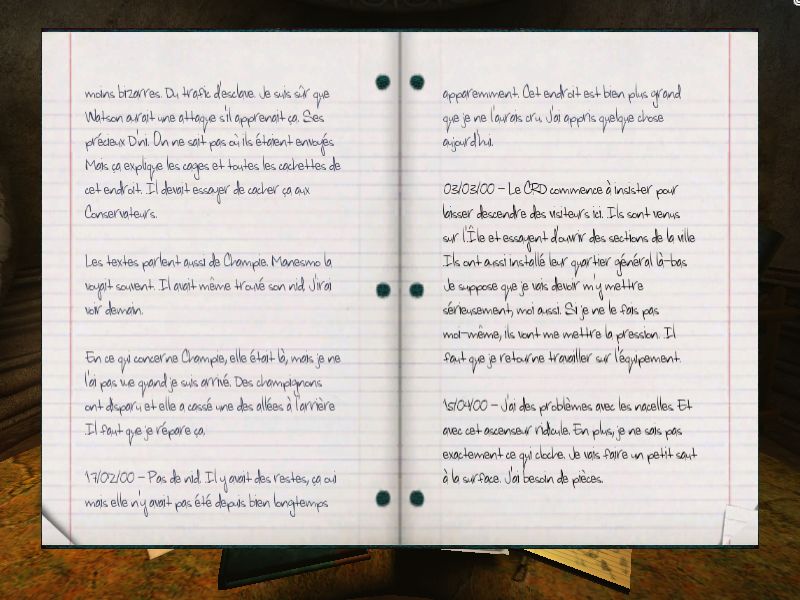 moins bizarres. Du trafic d'esclave. Je suis sûr que
Watson aurait une attaque s'il apprenait ça. Ses
précieux D'ni. On ne sait pas où ils étaient envoyés
Mais ça explique les cages et toutes les cachettes de
cet endroit. Il devait essayer de cacher ça aux
Conservateurs.
Les textes parlent aussi de Champie. Manesmo la
voyait souvent. Il avait même trouvé son nid. J'irai
voir demain.
En ce qui concerne Champie, elle était là, mais je ne
l'ai pas vue quand je suis arrivé. Des champignons
ont disparu et elle a cassé une des allées à l'arrière
Il faut que je répare ça.
17/02/00 – Pas de nid. Il y avait des restes, ça oui
mais elle n'y avait pas été depuis bien longtemps
apparemment. Cet endroit est bien plus grand
que je ne l'aurais cru. J'ai appris quelque chose
aujourd'hui.
03/03/00 – Le CRD commence à insister pour
laisser descendre des visiteurs ici. Ils sont venus
sur l'Île et essayent d'ouvrir des sections de la ville
Ils ont aussi installé leur quartier général là-bas
Je suppose que je vais devoir m'y mettre
sérieusement, moi aussi. Si je ne le fais pas
moi-même, ils vont me mettre la pression. Il
faut que je retourne travailler sur l'équipement.
15/04/00 – J'ai des problèmes avec les nacelles Et
avec cet ascenseur ridicule. En plus, je ne sais pas
exactement ce qui cloche. Je vais faire un petit saut
à la surface. J'ai besoin de pièces.